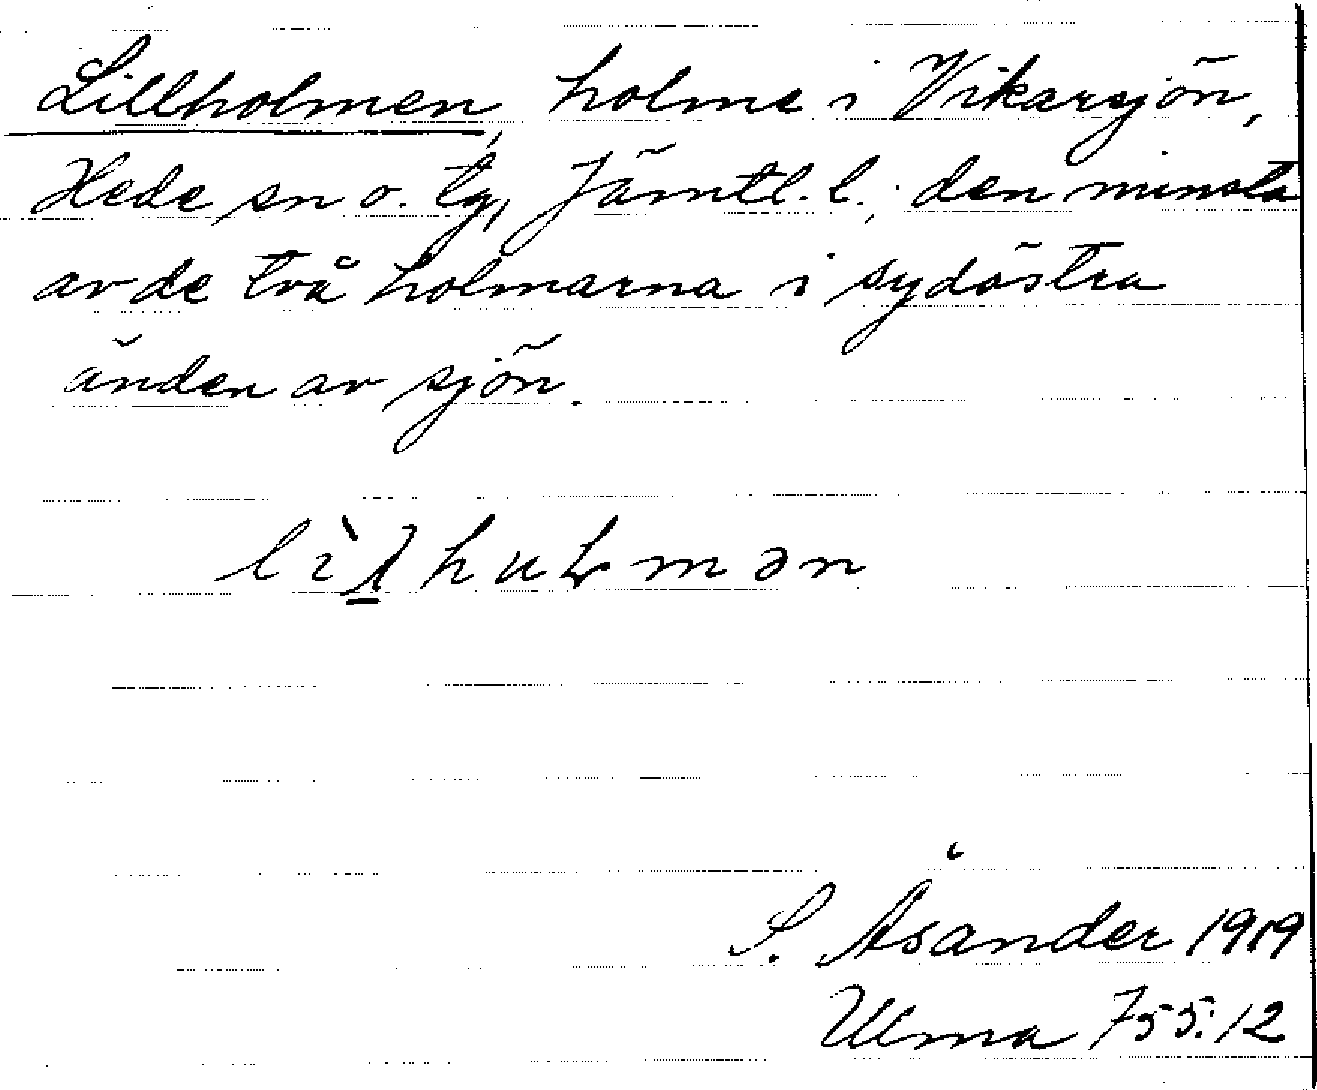 Lillholmen, holme i Vikarsjön,
Hede sn o. tg, Jämtl. l.; den minsta
av de två holmarna i sydöstra
änden av sjön.
lìɭhuɽmən
S. Åsander 1919
Ulma 755:12